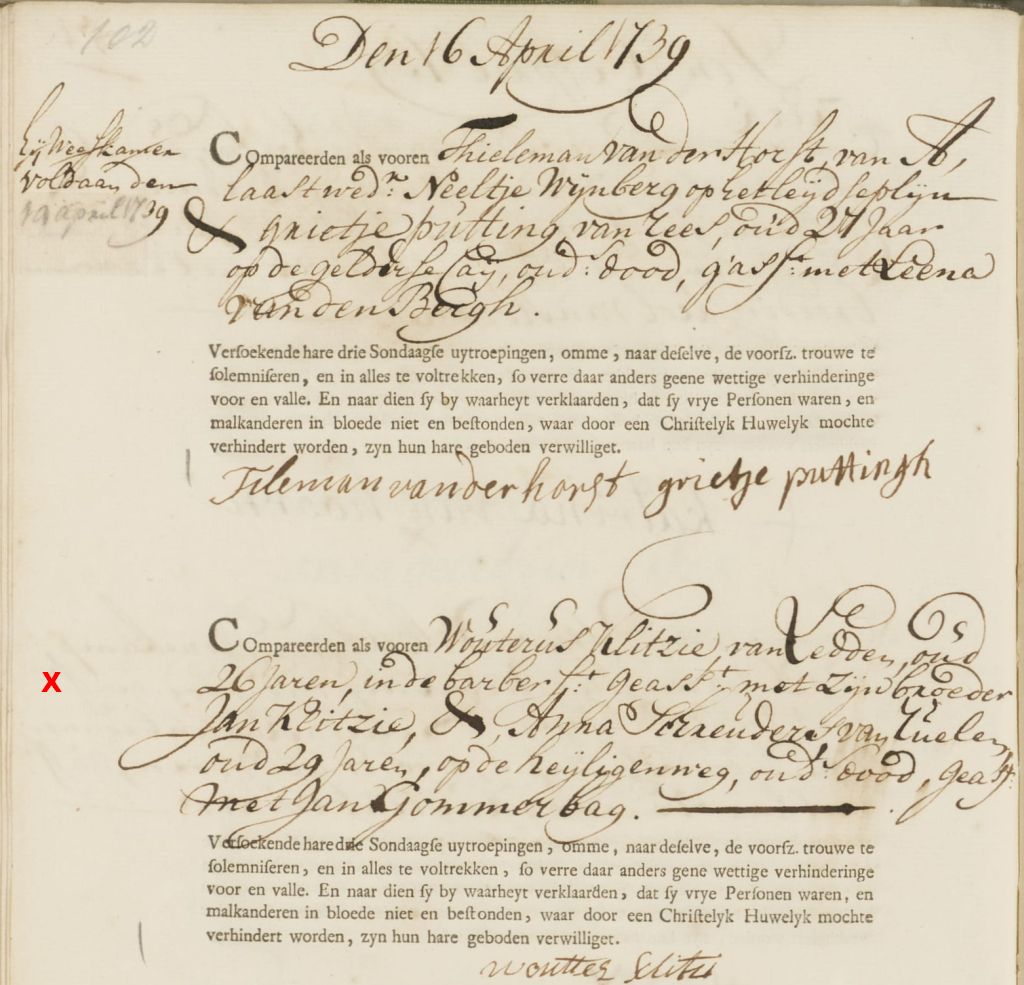 102
Den 16 April 1739
bij Weeskamer
voldaan den
19 april 1739
COmpareerden als vooren Thieleman van der Horst, van A,
laast wedr. Neeltje Wijnberg op het leijdseplijn
& grietje putting van Rees, oud 27 Jaar
op de gelderse Caij, oud.s dood, g'asst. met Leena
van den Bergh.
Versoekende hare drie Sondaagse uytroepingen, omme, naar deselve, de voorsz. trouwe te
solemniseren, en in alles te voltrekken, so verre daar anders geene wettige verhinderinge
voor en valle. En naar dien sy by waarheyt verklaarden, dat sy vrye Personen waren, en
malkanderen in bloede niet en bestonden, waar door een Christelyk Huwelyk mochte
verhindert worden, zyn hun hare geboden verwilliget.
Tileman van der horst grietje puttingh
COmpareerden als vooren Wouterus Klitzie, van Ledden, oud
26 Jaren, in de barber st. geasst. met zijn broeder
Jan Klitzie, & Anna Schreuders, van Cuelen,
oud 29 Jaren, op de heyligenweg, oud.s dood, geasst.
met Jan Gommerbag.
Versoekende hare drie Sondaagse uytroepingen, omme, naar deselve, de voorsz. trouwe te
solemniseren, en in alles te voltrekken, so verre daar anders gene wettige verhinderinge
voor en valle. En naar dien sy by waarheyt verklaarden, dat sy vrye Personen waren, en
malkanderen in bloede niet en bestonden, waar door een Christelyk Huwelyk mochte
verhindert worden, zyn hun hare geboden verwilliget.
X
woutter